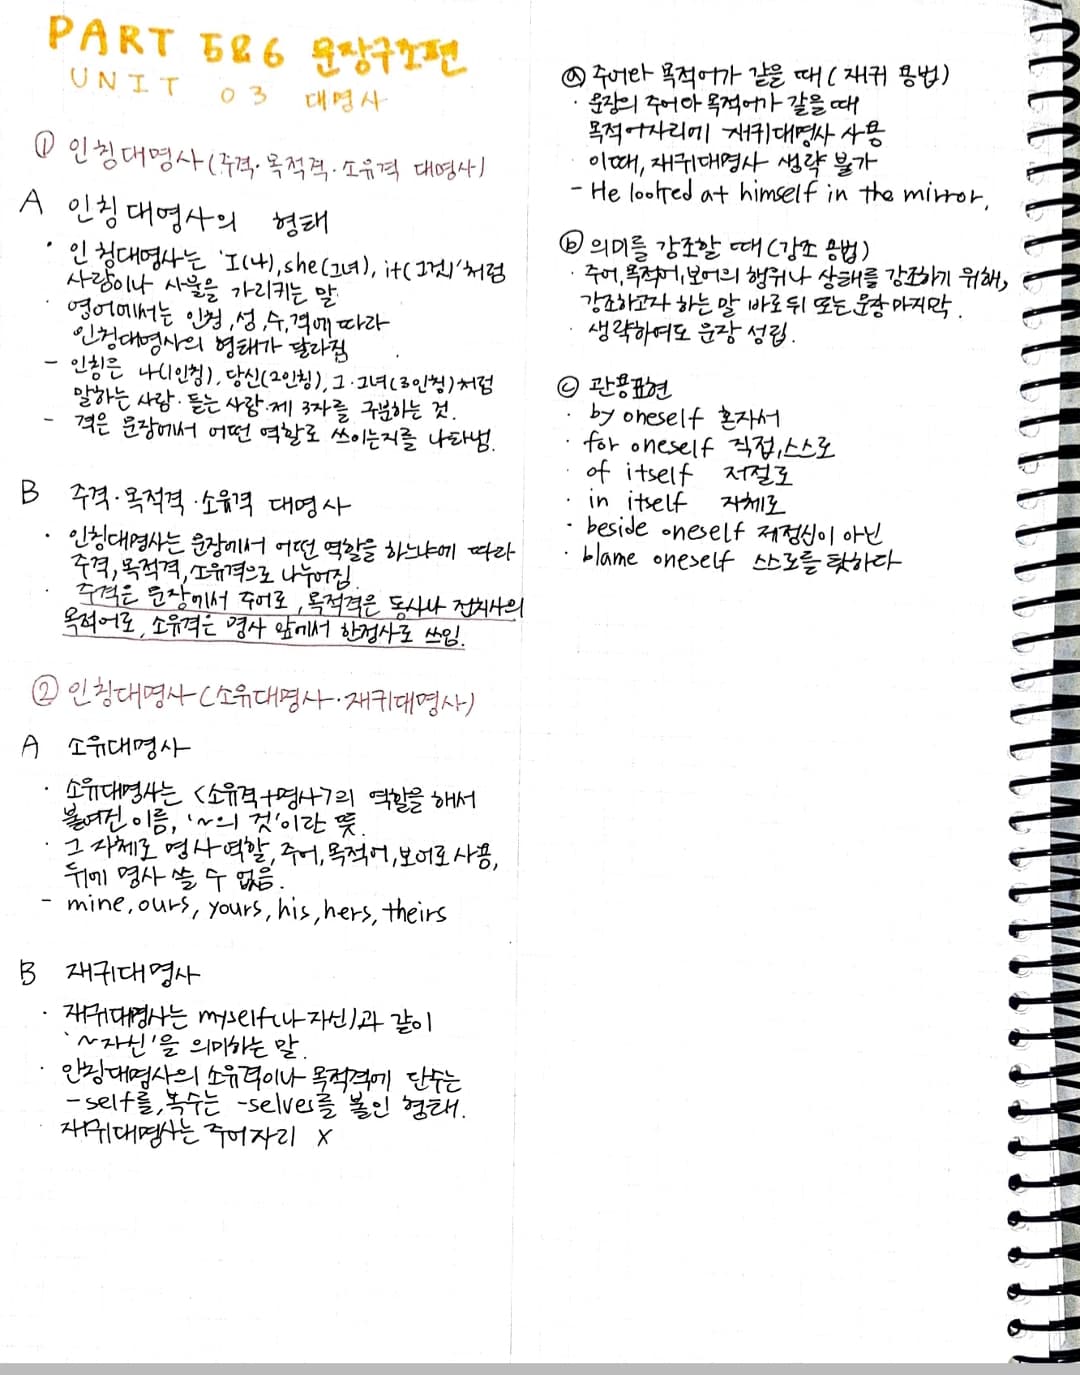 PART 5&6 문장구조편
UNIT 03 대명사
① 인칭대명사(주격·목적격·소유격 대명사)
A 인칭대명사의 형태
· 인칭대명사는 'I(나), she(그녀), it(그것)'처럼
사람이나 사물을 가리키는 말
· 영어에서는 인칭, 성, 수, 격에 따라
인칭대명사의 형태가 달라짐
- 인칭은 나(1인칭), 당신(2인칭), 그·그녀(3인칭)처럼
말하는 사람·듣는 사람·제 3자를 구분하는 것.
- 격은 문장에서 어떤 역할로 쓰이는지를 나타냄.
B 주격·목적격·소유격 대명사
· 인칭대명사는 문장에서 어떤 역할을 하느냐에 따라
주격, 목적격, 소유격으로 나누어짐
· 주격은 문장에서 주어로, 목적격은 동사나 전치사의
목적어로, 소유격은 명사 앞에서 한정사로 쓰임.
② 인칭대명사(소유대명사·재귀대명사)
A 소유대명사
· 소유대명사는 <소유격+명사>의 역할을 해서
붙여진 이름, '~의 것'이란 뜻.
· 그 자체로 명사 역할, 주어, 목적어, 보어로 사용,
뒤에 명사 쓸 수 없음.
- mine, ours, yours, his, hers, theirs
B 재귀대명사
· 재귀대명사는 myself(나 자신)과 같이
'~자신'을 의미하는 말.
· 인칭대명사의 소유격이나 목적격에 단수는
-self를, 복수는 -selves를 붙인 형태.
재귀대명사는 주어자리 X
ⓐ 주어와 목적어가 같을 때(재귀 용법)
· 문장의 주어와 목적어가 같을 때
목적어자리에 재귀대명사 사용
이때, 재귀대명사 생략 불가
- He looked at himself in the mirror.
ⓑ 의미를 강조할 때(강조 용법)
· 주어, 목적어, 보어의 행위나 상태를 강조하기 위해,
강조하고자 하는 말 바로 뒤 또는 문장 마지막.
· 생략하여도 문장 성립.
ⓒ 관용표현
· by oneself 혼자서
· for oneself 직접, 스스로
· of itself 저절로
· in itself 자체로
· beside oneself 제정신이 아닌
· blame oneself 스스로를 탓하다